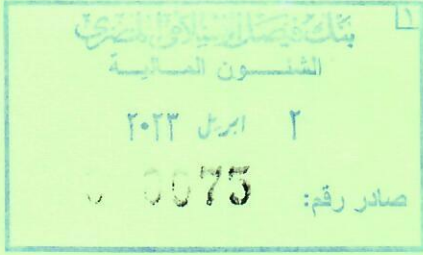 ١
بنك فيصل الإسلامي المصري
الشئون المالية
٢ ابريل ٢٠٢٣
صادر رقم: 0075